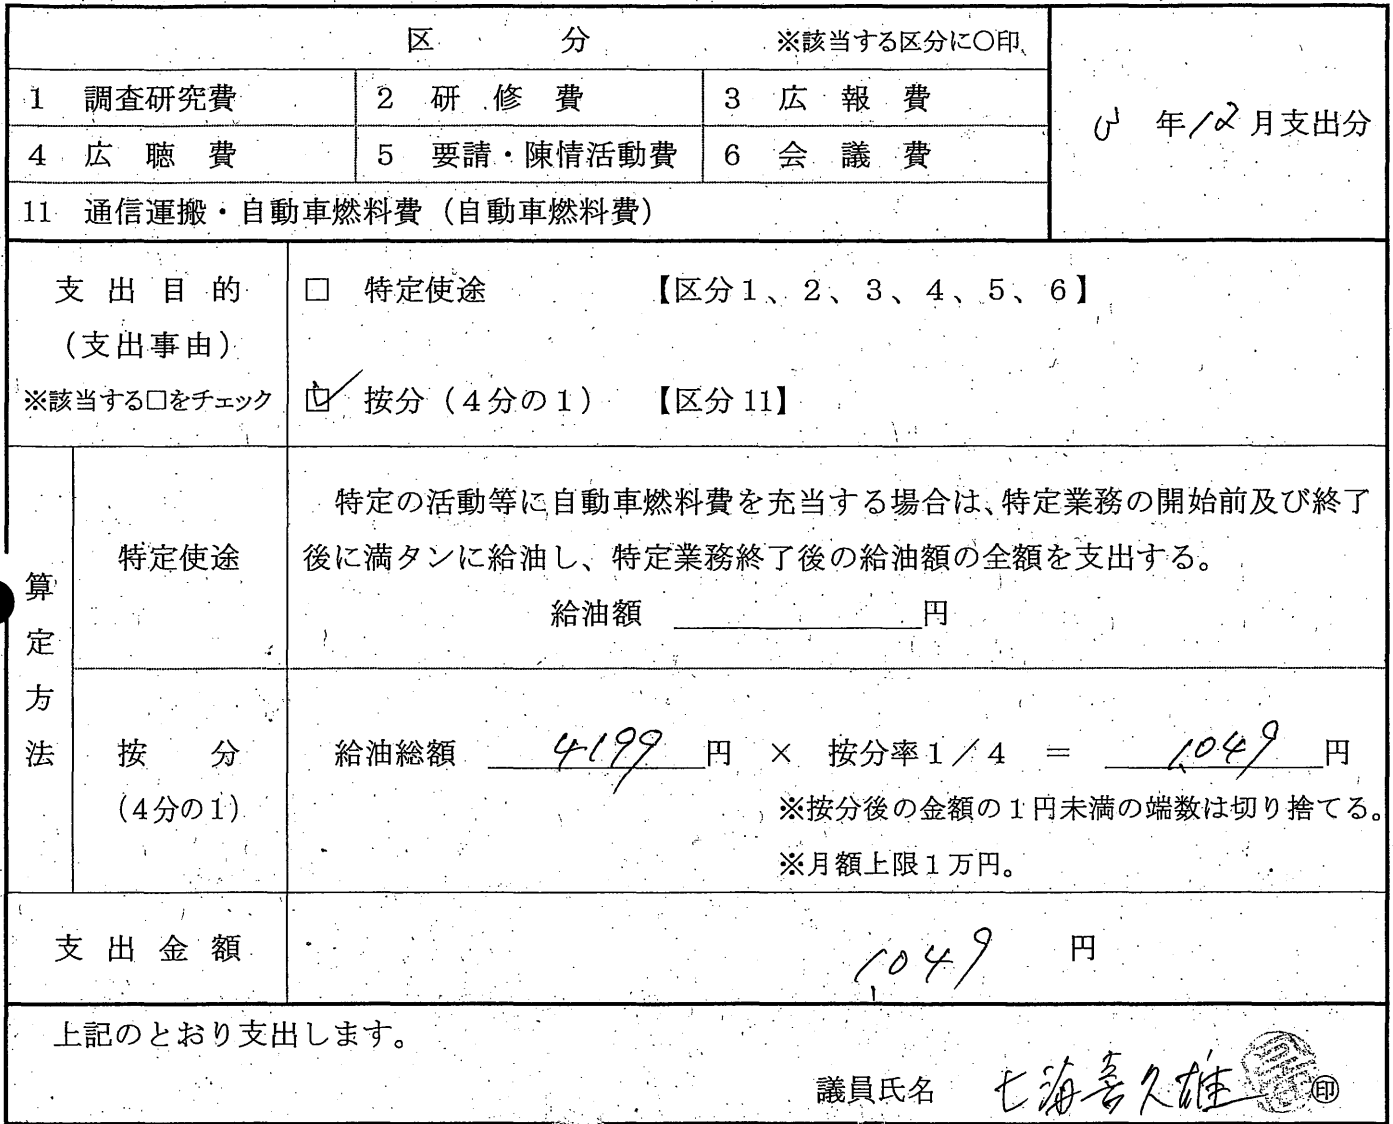 区 分 ※該当する区分に○印
1 調査研究費 2 研修費 3 広報費
年12月支出分
4 広聴費 5 要請・陳情活動費 6 会議費
11 通信運搬・自動車燃料費（自動車燃料費）
支出目的
（支出事由）
※該当する□をチェック
□ 特定使途 【区分1、2、3、4、5、6】
☑ 按分（4分の1） 【区分11】
算定方法
特定使途
特定の活動等に自動車燃料費を充当する場合は、特定業務の開始前及び終了
後に満タンに給油し、特定業務終了後の給油額の全額を支出する。
給油額 円
按分
（4分の1）
給油総額 4199 円 × 按分率1／4 ＝ 1,049 円
※按分後の金額の1円未満の端数は切り捨てる。
※月額上限1万円。
支出金額 1,049 円
上記のとおり支出します。
議員氏名 七海喜久雄 ㊞